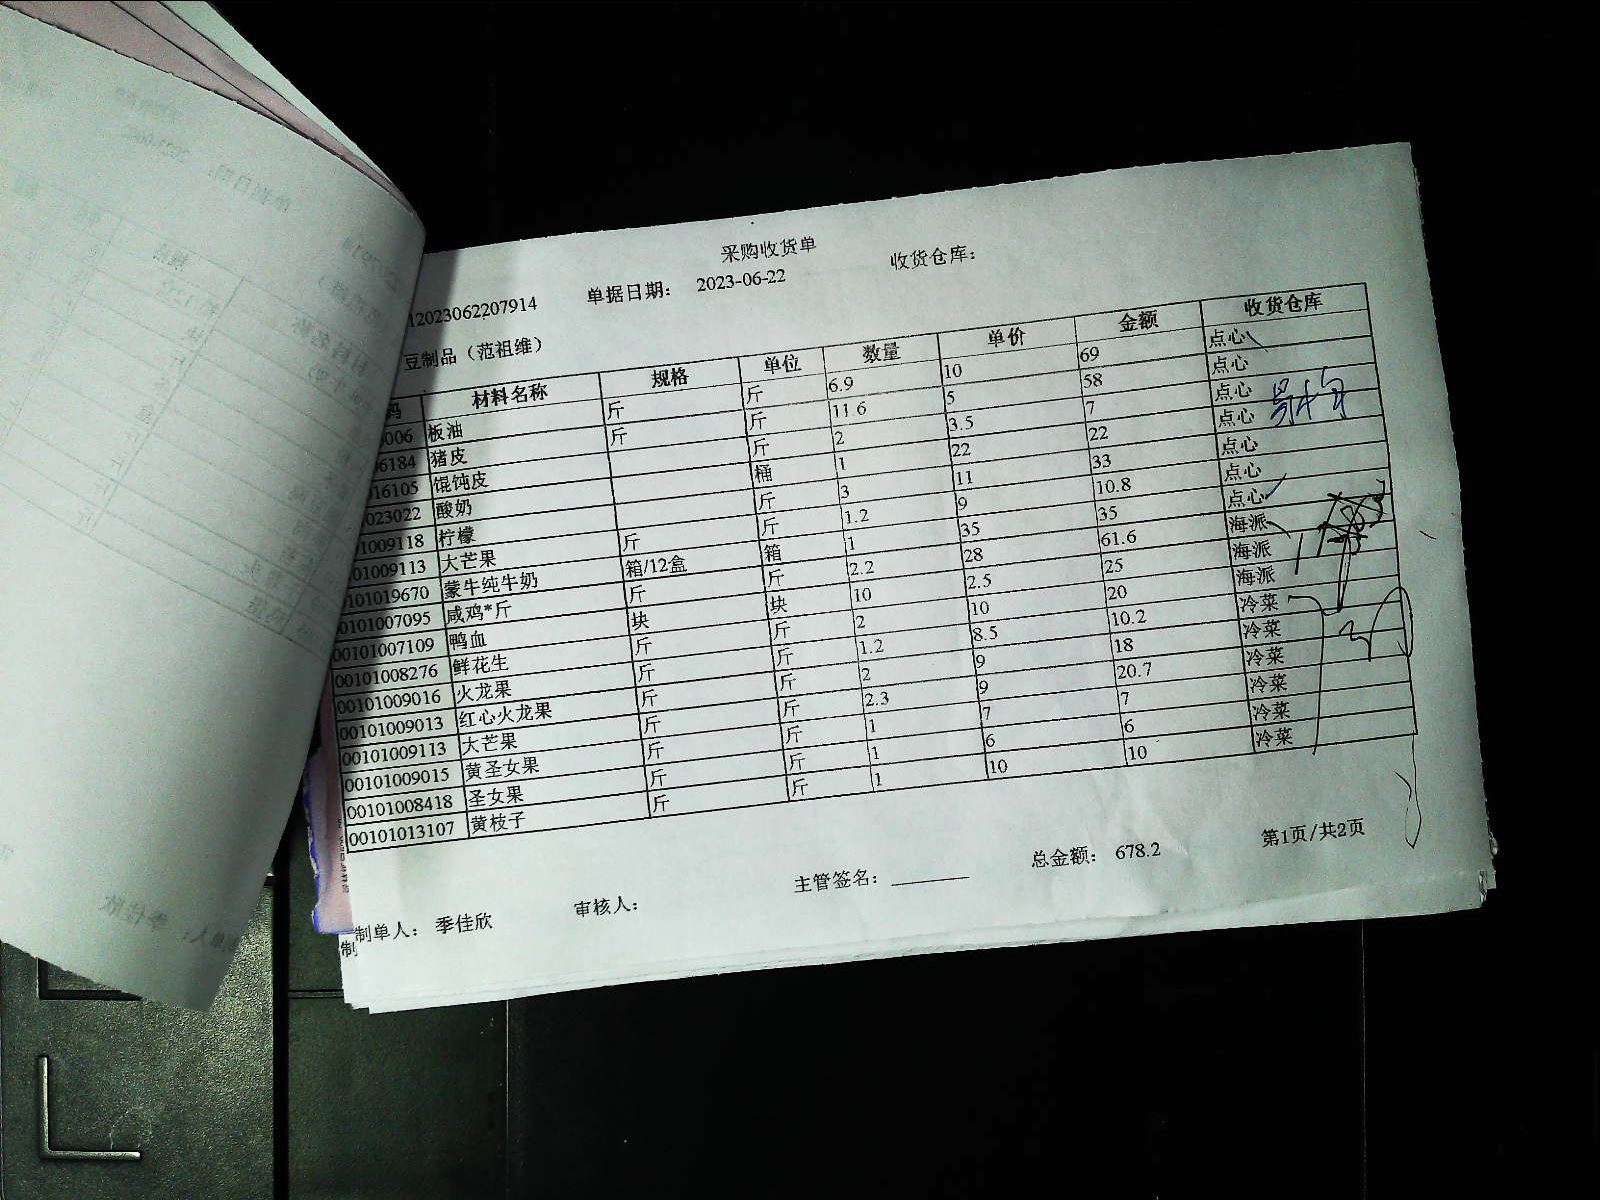 采购收货单
12023062207914 单据日期： 2023-06-22 收货仓库：
豆制品（范祖维）
码 材料名称 规格 单位 数量 单价 金额 收货仓库
006 板油 斤 斤 6.9 10 69 点心
6184 猪皮 斤 斤 11.6 5 58 点心
016105 馄饨皮 斤 2 3.5 7 点心
023022 酸奶 桶 1 22 22 点心
01009118 柠檬 斤 3 11 33 点心
01009113 大芒果 斤 斤 1.2 9 10.8 点心
0101019670 蒙牛纯牛奶 箱/12盒 箱 1 35 35 点心
0101007095 咸鸡*斤 斤 斤 2.2 28 61.6 海派
00101007109 鸭血 块 块 10 2.5 25 海派
00101008276 鲜花生 斤 斤 2 10 20 海派
00101009016 火龙果 斤 斤 1.2 8.5 10.2 冷菜
00101009013 红心火龙果 斤 斤 2 9 18 冷菜
00101009113 大芒果 斤 斤 2.3 9 20.7 冷菜
00101009015 黄圣女果 斤 斤 1 7 7 冷菜
00101008418 圣女果 斤 斤 1 6 6 冷菜
00101013107 黄枝子 斤 斤 1 10 10 冷菜
总金额： 678.2 第1页/共2页
制单人： 季佳欣 审核人： 主管签名：
制